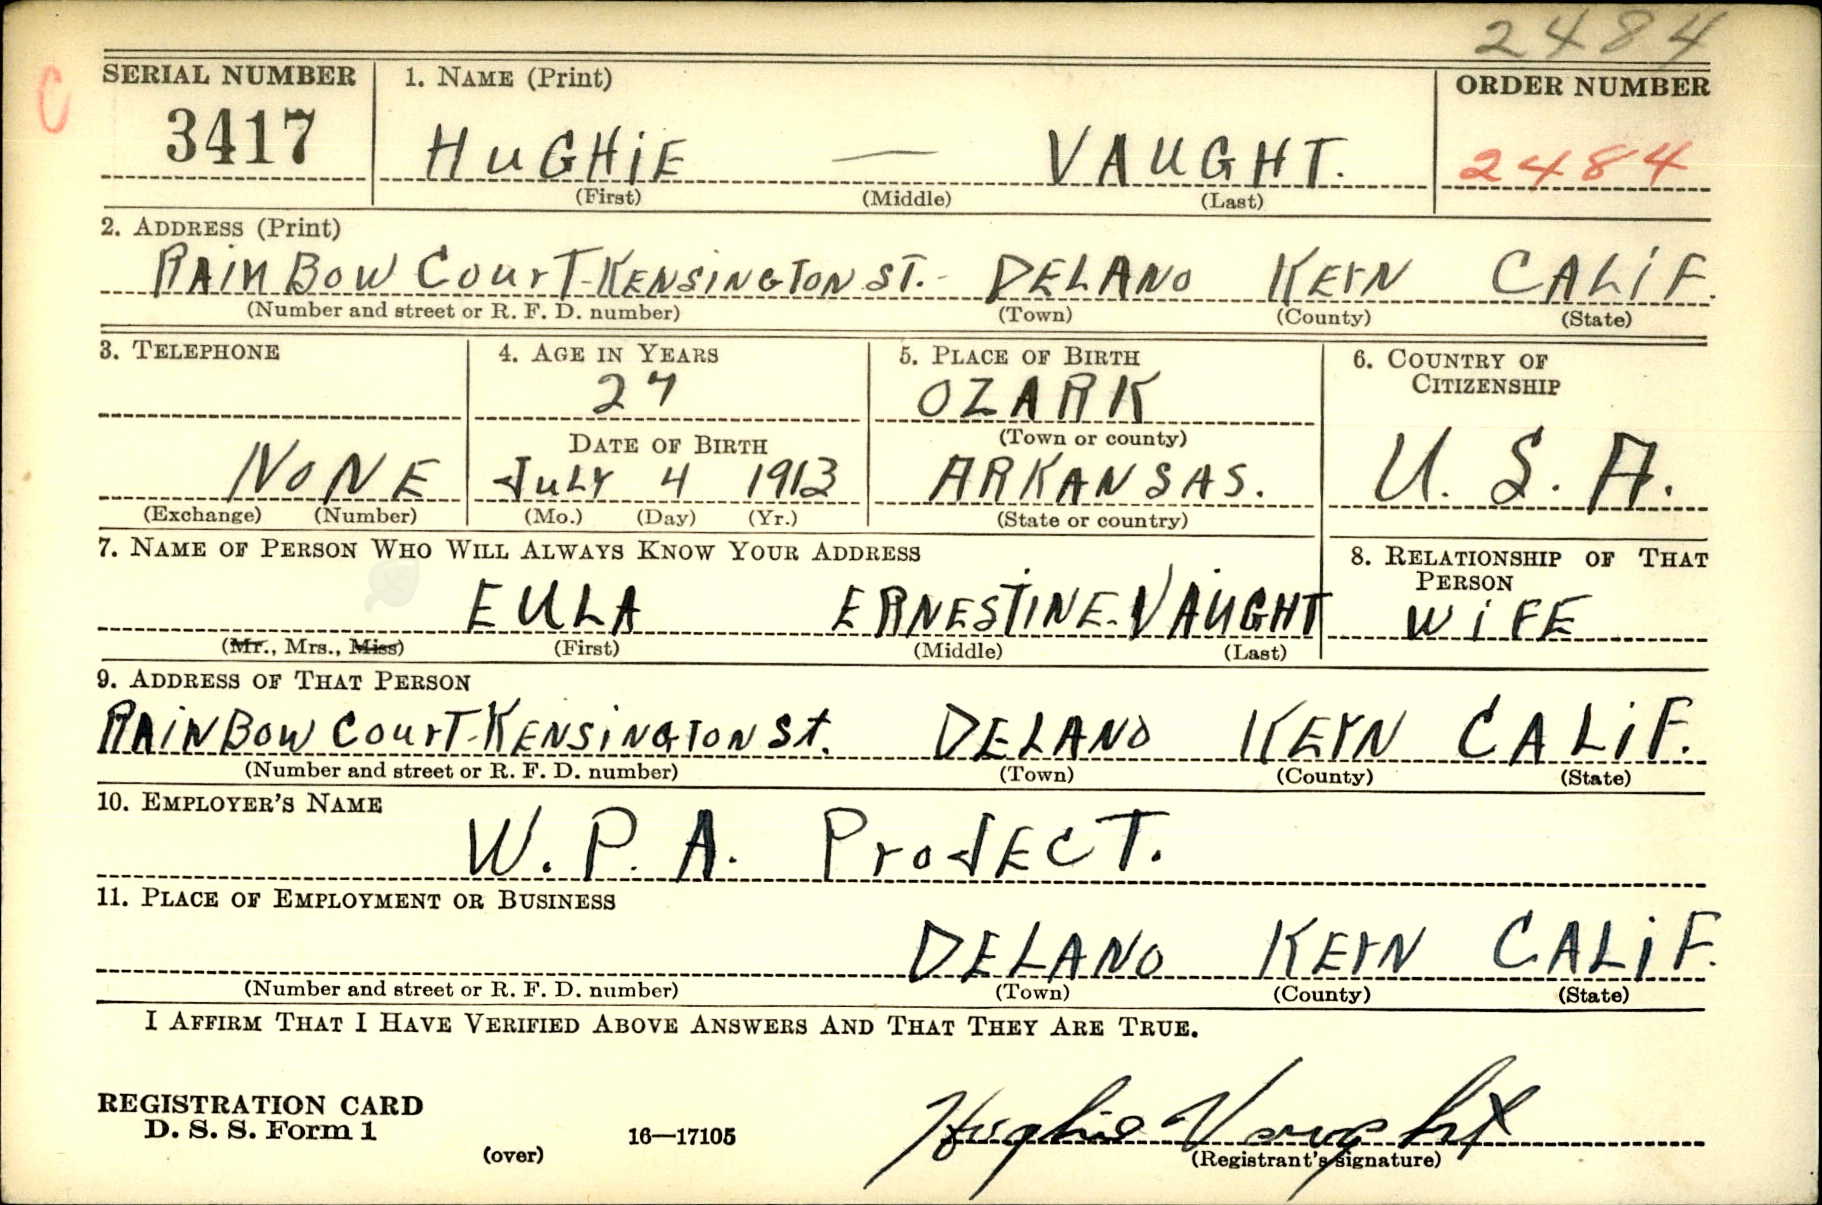 2484
C
SERIAL NUMBER 1. NAME (Print) ORDER NUMBER
3417 HUGHIE — VAUGHT. 2484
(First) (Middle) (Last)
2. ADDRESS (Print)
RAINBOW COURT-KENSINGTON ST.- DELANO KERN CALIF.
(Number and street or R. F. D. number) (Town) (County) (State)
3. TELEPHONE 4. AGE IN YEARS 5. PLACE OF BIRTH 6. COUNTRY OF CITIZENSHIP
27 OZARK
DATE OF BIRTH (Town or county)
NONE JULY 4 1913 ARKANSAS. U. S. A.
(Exchange) (Number) (Mo.) (Day) (Yr.) (State or country)
7. NAME OF PERSON WHO WILL ALWAYS KNOW YOUR ADDRESS 8. RELATIONSHIP OF THAT PERSON
EULA ERNESTINE-VAUGHT WIFE
(Mr., Mrs., Miss) (First) (Middle) (Last)
9. ADDRESS OF THAT PERSON
RAINBOW COURT-KENSINGTON St. DELANO KERN CALIF.
(Number and street or R. F. D. number) (Town) (County) (State)
10. EMPLOYER'S NAME
W. P. A. PROJECT.
11. PLACE OF EMPLOYMENT OR BUSINESS
DELANO KERN CALIF.
(Number and street or R. F. D. number) (Town) (County) (State)
I AFFIRM THAT I HAVE VERIFIED ABOVE ANSWERS AND THAT THEY ARE TRUE.
REGISTRATION CARD
D. S. S. Form 1 16—17105 Hughie Vaught
(over) (Registrant's signature)